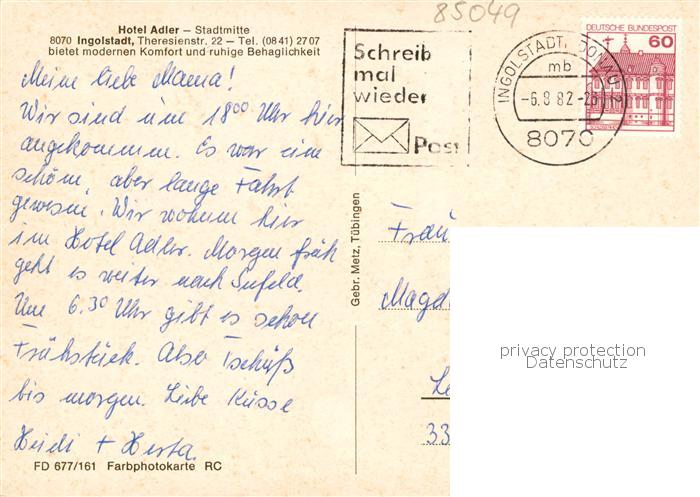 85049
Hotel Adler – Stadtmitte
8070 Ingolstadt, Theresienstr. 22 – Tel. (08 41) 27 07
bietet modernen Komfort und ruhige Behaglichkeit
Schreib
mal
wieder
Post
INGOLSTADT, DONAU
mb
-6.8.82-23
8070
DEUTSCHE BUNDESPOST
60
Meine liebe Mama!
Wir sind um 18⁰⁰ Uhr hier
angekommen. Es war eine
schöne, aber lange Fahrt
gewesen. Wir wohnen hier
im Hotel Adler. Morgen früh
geht es weiter nach Seefeld.
Um 6.30 Uhr gibt es schon
Frühstück. Also Tschüß
bis morgen. Liebe Küsse
Heidi + Herta.
Gebr. Metz, Tübingen
Frau
Magd
33
privacy protection
Datenschutz
FD 677/161 Farbphotokarte RC